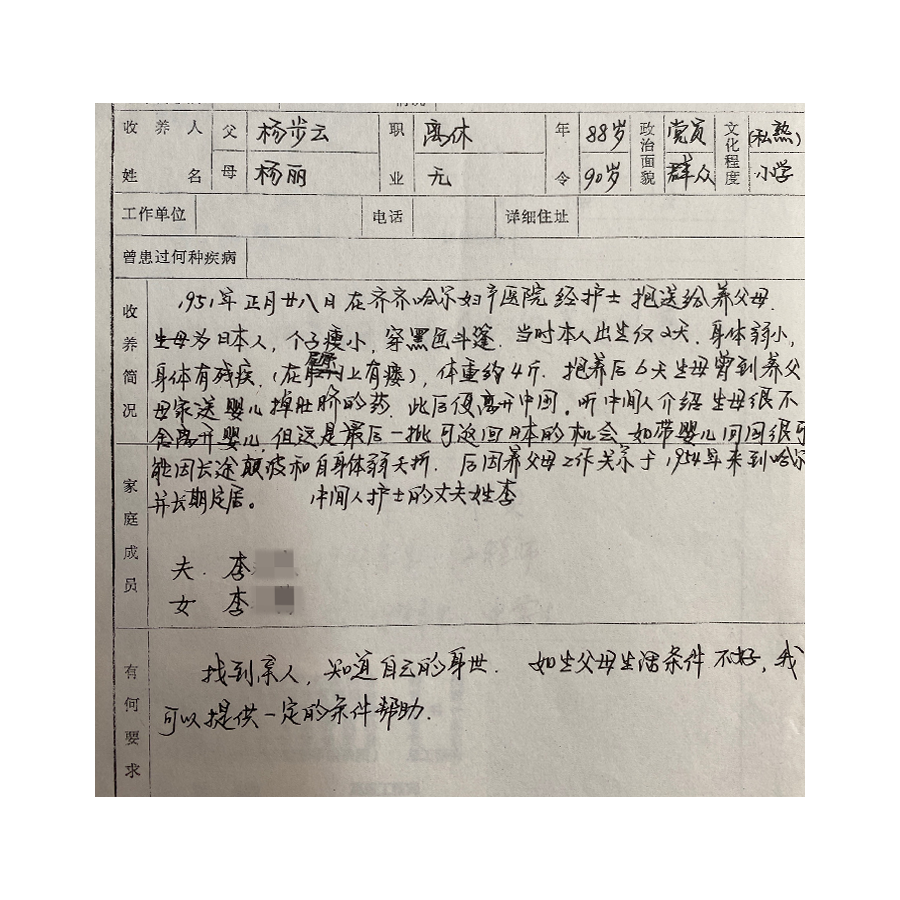 情况
收养人 父 杨步云 职 离休 年 88岁 政治面貌 党员 文化程度 (私熟)
姓名 母 杨丽 业 无 令 90岁 群众 小学
工作单位 电话 详细住址
曾患过何种疾病
收养简况
1951年正月廿八日在齐齐哈尔妇产医院经护士抱送给养父母.
生母为日本人，个子瘦小，穿黑色斗篷．当时本人出生仅2天．身体弱小，
身体有残疾，(在 上有瘘)，体重约4斤．抱养后6天生母曾到养父
母家送婴儿掉肚脐的药．此后便离开中国．听中间人介绍生母很不
舍离开婴儿，但这是最后一批可返回日本的机会．如带婴儿回国很可
能因长途颠波和自身体弱夭折．后因养父母工作关系于1954年来到哈尔
并长期定居。 中间人护士的丈夫姓李
家庭成员
夫．李
女 李
有何要求
找到亲人，知道自己的身世． 如生父母生活条件不好，我
可以提供一定的条件帮助.